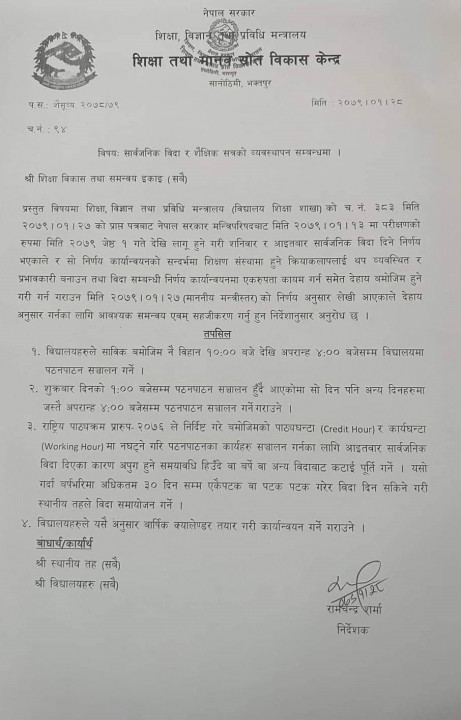 नेपाल सरकार
शिक्षा, विज्ञान तथा प्रविधि मन्त्रालय
शिक्षा तथा मानव स्रोत विकास केन्द्र
सानोठिमी, भक्तपुर
प.स.: शैसूव्य २०७८/७९
मिति : २०७९।०१।२८
च.नं : ९४
विषय: सार्वजनिक विदा र शैक्षिक सत्रको व्यवस्थापन सम्बन्धमा ।
श्री शिक्षा विकास तथा समन्वय इकाइ (सबै)
प्रस्तुत विषयमा शिक्षा, विज्ञान तथा प्रविधि मन्त्रालय (विद्यालय शिक्षा शाखा) को च. नं. ३८३ मिति
२०७९।०१।२७ को प्राप्त पत्रबाट नेपाल सरकार मन्त्रिपरिषदबाट मिति २०७९।०१।१३ मा परीक्षणको
रुपमा मिति २०७९ जेष्ठ १ गते देखि लागू हुने गरी शनिवार र आइतवार सार्वजनिक विदा दिने निर्णय
भएकाले र सो निर्णय कार्यान्वयनको सन्दर्भमा शिक्षण संस्थामा हुने क्रियाकलापलाई थप व्यवस्थित र
प्रभावकारी बनाउन तथा विदा सम्बन्धी निर्णय कार्यान्वयनमा एकरुपता कायम गर्न समेत देहाय बमोजिम हुने
गरी गर्न गराउन मिति २०७९।०१।२७ (माननीय मन्त्रीस्तर) को निर्णय अनुसार लेखी आएकाले देहाय
अनुसार गर्नका लागि आवश्यक समन्वय एवम् सहजीकरण गर्नु हुन निर्देशानुसार अनुरोध छ ।
तपसिल
१. विद्यालयहरुले साविक बमोजिम नै विहान १०:०० बजे देखि अपरान्ह ४:०० बजेसम्म विद्यालयमा
पठनपाठन सञ्चालन गर्ने ।
२. शुक्रबार दिनको १:०० बजेसम्म पठनपाठन सञ्चालन हुँदै आएकोमा सो दिन पनि अन्य दिनहरुमा
जस्तै अपरान्ह ४:०० बजेसम्म पठनपाठन सञ्चालन गर्ने गराउने ।
३. राष्ट्रिय पाठ्यक्रम प्रारुप-२०७६ ले निर्दिष्ट गरे बमोजिमको पाठ्यघन्टा (Credit Hour) र कार्यघन्टा
(Working Hour) मा नघट्ने गरि पठनपाठनका कार्यहरु सञ्चालन गर्नका लागि आइतवार सार्वजनिक
विदा दिएका कारण अपुग हुने समयावधि हिउँदे वा वर्षे वा अन्य विदाबाट कटाई पूर्ति गर्ने । यसो
गर्दा वर्षभरिमा अधिकतम ३० दिन सम्म एकैपटक वा पटक पटक गरेर विदा दिन सकिने गरी
स्थानीय तहले विदा समायोजन गर्ने ।
४. विद्यालयहरुले यसै अनुसार वार्षिक क्यालेण्डर तयार गरी कार्यान्वयन गर्ने गराउने ।
बोधार्थ/कार्यार्थ
श्री स्थानीय तह (सबै)
श्री विद्यालयहरु (सबै)
रामचन्द्र शर्मा
निर्देशक